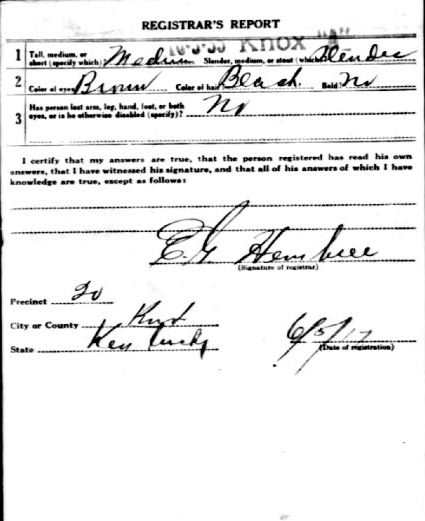 REGISTRAR'S REPORT
Knox "A"
1 Tall, medium, or short (specify which) Medium Slender, medium, or stout (which) Slender
2 Color of eyes Brown Color of hair Black Bald? No
3 Has person lost arm, leg, hand, foot, or both eyes, or is he otherwise disabled (specify)? No
I certify that my answers are true, that the person registered has read his own
answers, that I have witnessed his signature, and that all of his answers of which I have
knowledge are true, except as follows:
E. G. Hembree
(Signature of registrar)
Precinct 20
City or County Knox
State Kentucky
6/5/17
(Date of registration)